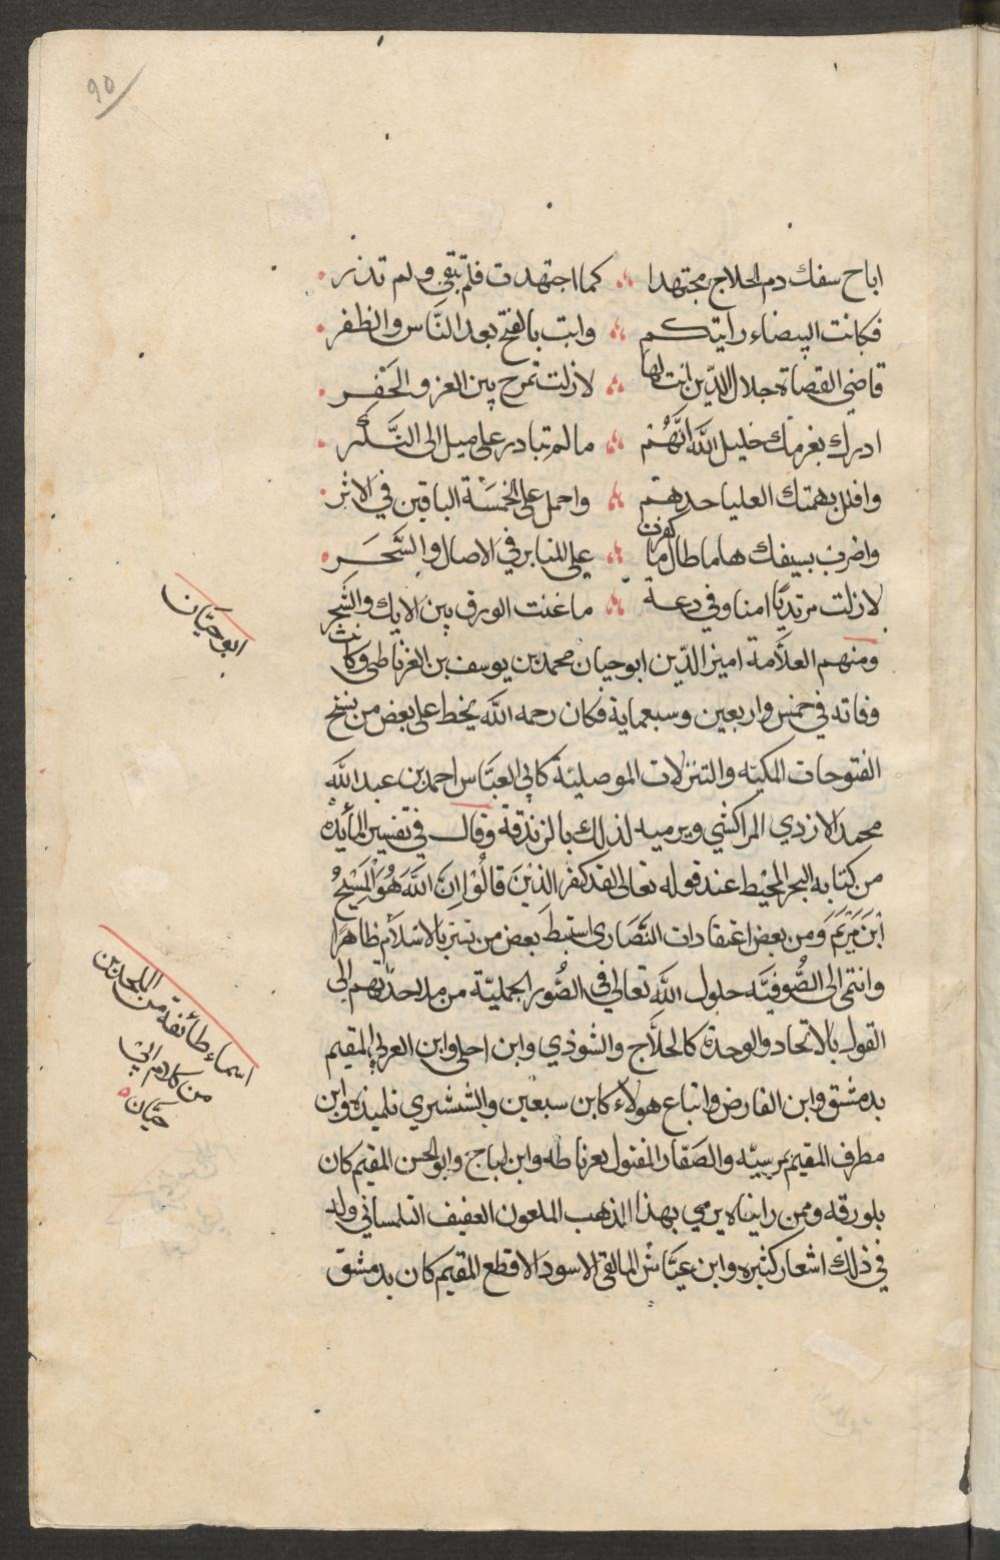 ٩٥
اباح سفك دم الحلاج مجتهدا ؞ كما اجتهدت فلم تبقي ولم تذر
فكانت البيضاء رايتكم ؞ وابت بالفتح بعد الناس والظفر
قاضي القضاة جلال الدّين انت لها ؞ لازلت تمرح بين العز والخفر
ادرك بغرمك خليل الله انّهُم ؞ مالم تبادر على ميل الى النَّكر
وافلل بهمتك العليا حدهم ؞ واحمل على الخمسَة الباقين في الاثر
واضرب بسيفك هاما طال ما كفرت ؞ على المنابر في الاصال والسَّحَر
لازلت مرتديًا امنا وفي دعة ؞ ما غنت الورق بين الايك والشجر
ومنهم العلاَّمة امين الدّين ابو حيان محمد بن يوسف بن الغرناطي وكانت
وفاته في خمس واربعين وسبعماية فكان رحمه الله يخط على بعض من نسخ
الفتوحات المكيّه والتنزلات الموصليّة كابي العبَّاس احمد بن عبد الله
محمد الازدي المراكشي ويرميه لذلك بالزندقة وقال في تفسير المأيدة
من كتابه البحر المحيط عند قوله تعالى لقد كفر الذيْنَ قالُوْا اِنَّ اللهَ هُوَ الْمَسِيْحُ
ابْنَ مَرْيَمَ وَمن بعض اعتقادات النَّصَارى استبطَ بعض من تستر بالاسْلاَم ظاهرًا
وانتمى الى الصُّوفيَّه حلول اللهِ تعالى في الصُّور الجمليّة من ملاحدتهم الى
القول بالاتحاد والوحدة كالحلاَّج والشوذي وابن احلى وابن العربي المقيم
بدمشق وابن الفارض واتباع هولاء كابن سبعين والششتري تلميذه وابن
مطرف المقيم بمرسيّه والصَفار المقتول بغرناطه وابن لباج وابو الحسن المقيم كان
بلورقه وممن رايناه يرمي بهذا المذهب الملعون العفيف التلمساني وله
في ذلك اشعار كثيره وابن عيَّاش المالقي الاسود الاقطع المقيم كان بدمشق
ابو حيَّان
اسماء طائفة من الملحدين
من كلام ابي
حيَّان